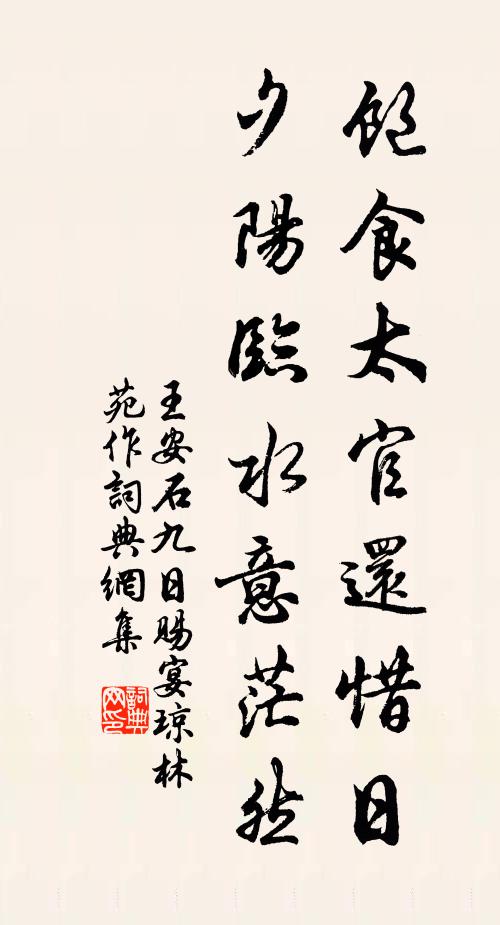 飽食太官還惜日
夕陽臨水意茫然
王安石九日賜宴琼林
苑作詞典網集
詞典网印